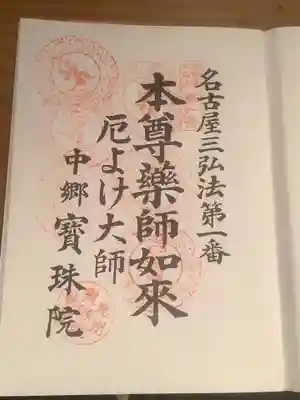 名古屋三弘法第一番
本尊藥師如來
厄よけ大師
中郷寶珠院